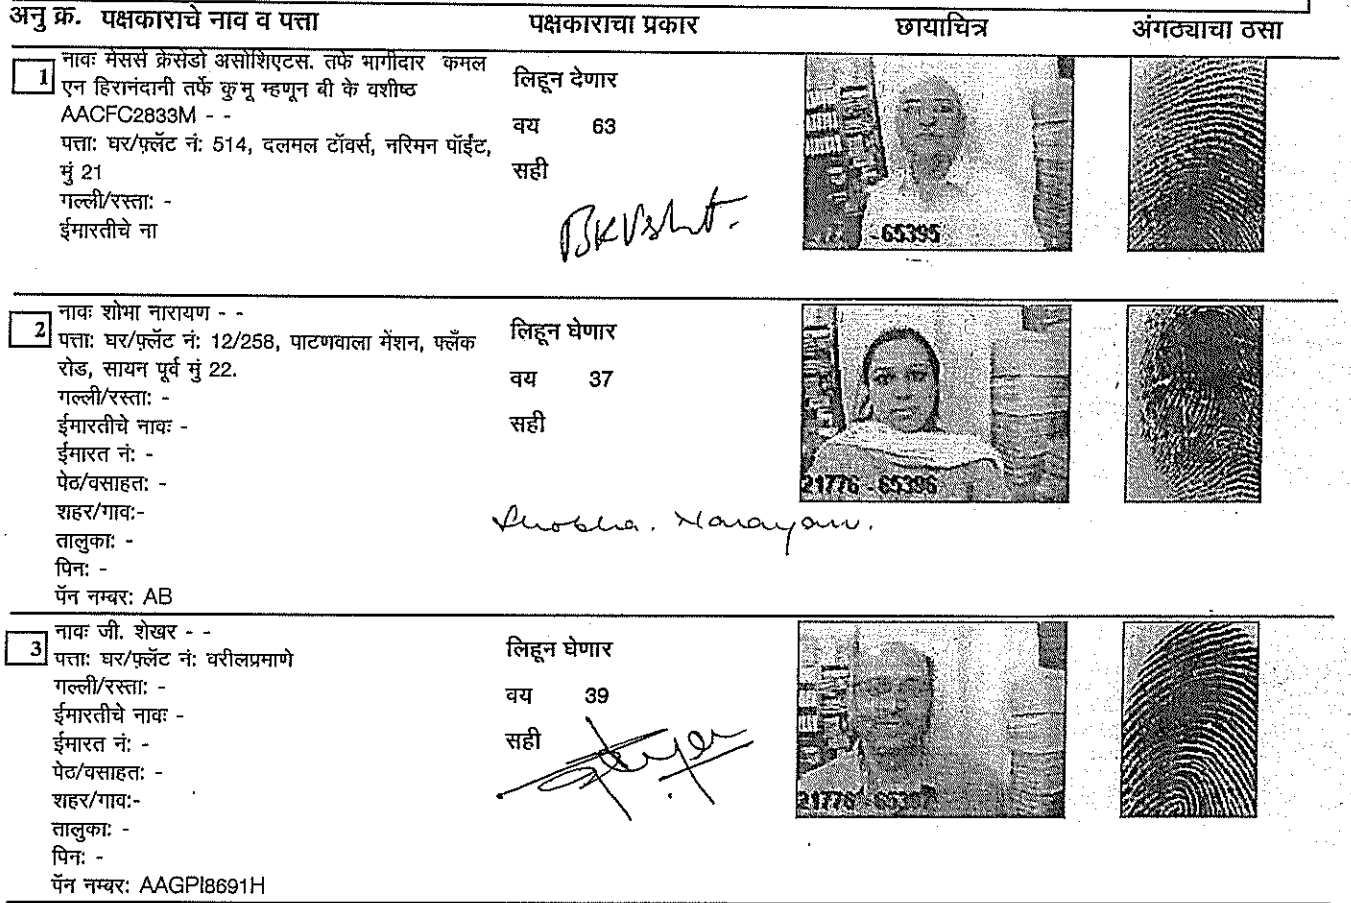 अनु क्र. पक्षकाराचे नाव व पत्ता पक्षकाराचा प्रकार छायाचित्र अंगठ्याचा ठसा
1 नावः मेसर्स क्रेसेंडो असोशिएटस. तर्फे भागीदार कमल
एन हिरानंदानी तर्फे कु मू म्हणून बी के वशीष्ठ
AACFC2833M - -
पत्ताः घर/फ़्लॅट नं: 514, दलमल टॉवर्स, नरिमन पॉईंट,
मुं 21
गल्ली/रस्ताः -
ईमारतीचे ना
लिहून देणार
वय 63
सही
-65395
2 नावः शोभा नारायण - -
पत्ताः घर/फ़्लॅट नं: 12/258, पाटणवाला मेंशन, फ्लँक
रोड, सायन पूर्व मुं 22.
गल्ली/रस्ताः -
ईमारतीचे नावः -
ईमारत नं: -
पेठ/वसाहतः -
शहर/गाव:-
तालुकाः -
पिनः -
पॅन नम्बर: AB
लिहून घेणार
वय 37
सही
Shobha. Narayan.
21776 - 65396
3 नावः जी. शेखर - -
पत्ताः घर/फ़्लॅट नं: वरीलप्रमाणे
गल्ली/रस्ताः -
ईमारतीचे नावः -
ईमारत नं: -
पेठ/वसाहतः -
शहर/गाव:-
तालुकाः -
पिनः -
पॅन नम्बर: AAGPI8691H
लिहून घेणार
वय 39
सही
21776 -65397